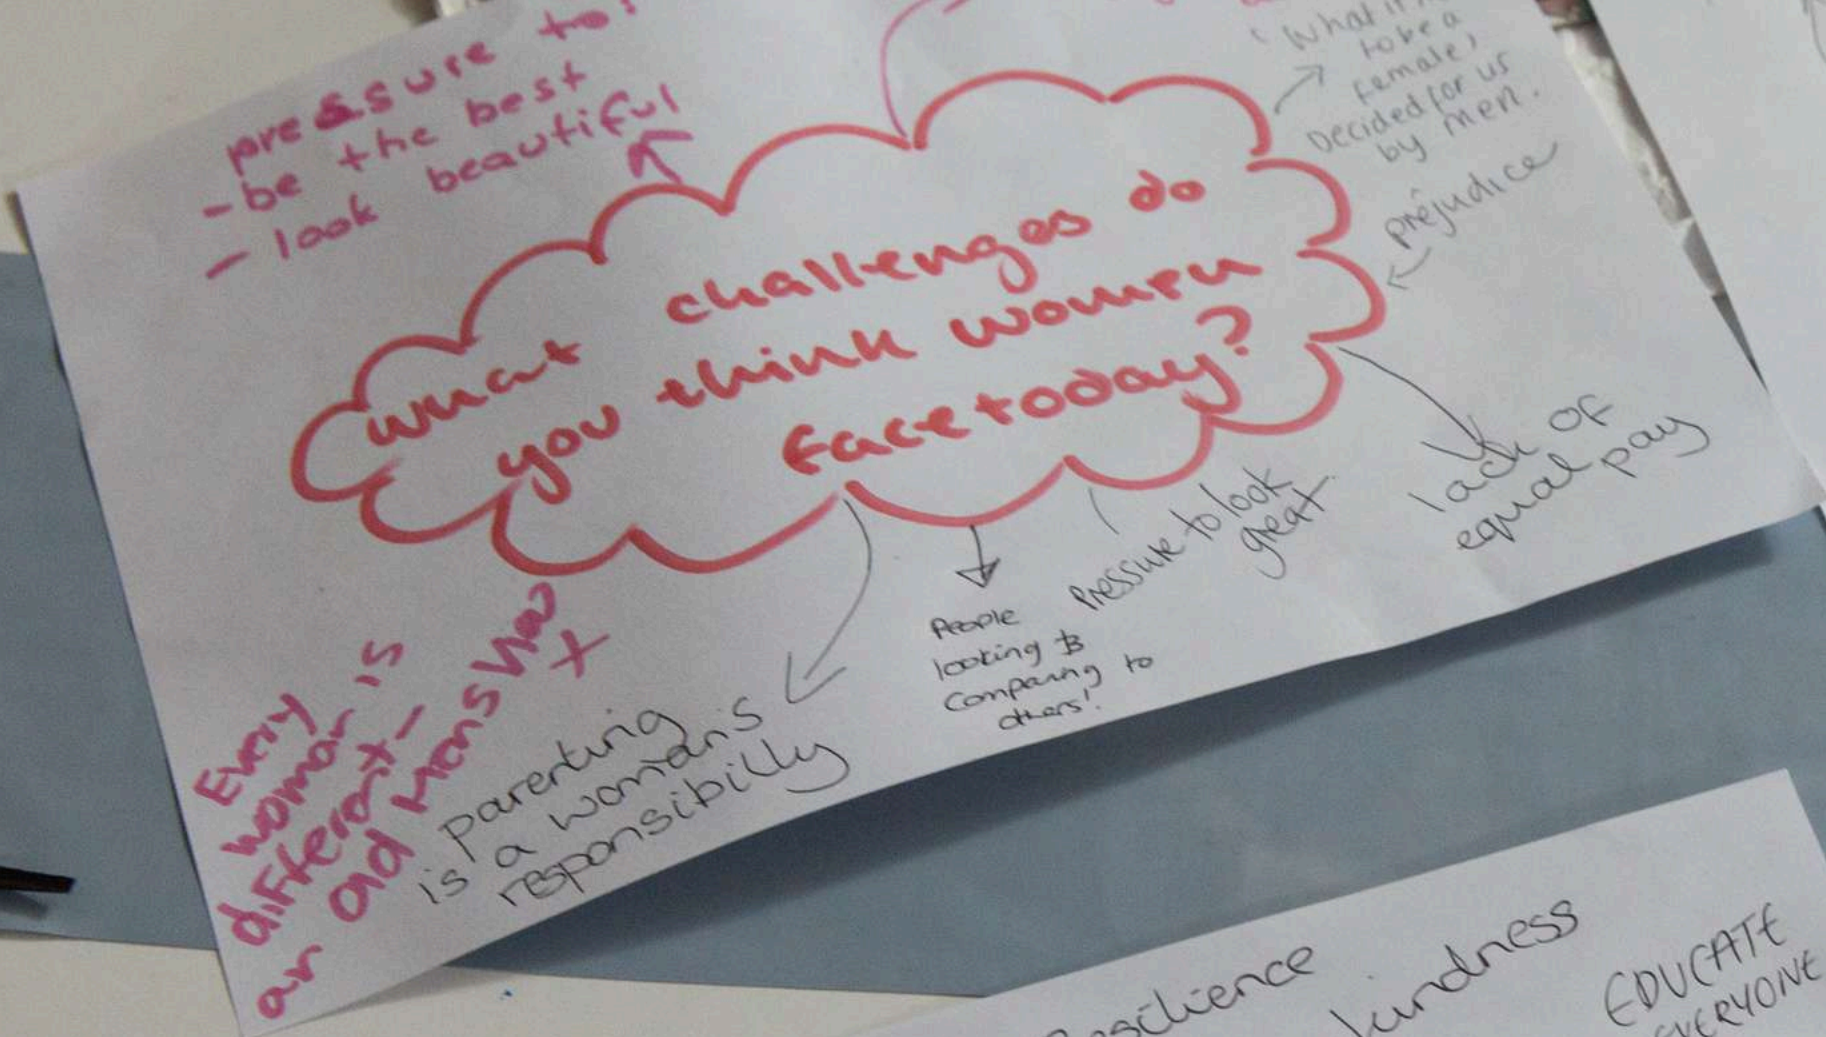 pressure to:
- be the best
- look beautiful
'What it
to be a
female'
Decided for us
by men.
prejudice
what challenges do
you think women
face today?
lack of
equal pay
Pressure to look
great
People
looking &
Comparing to
others!
parenting
is a woman's
responsibilly
Every
woman is
different -
an
kindness
EDUCATE
EVERYONE